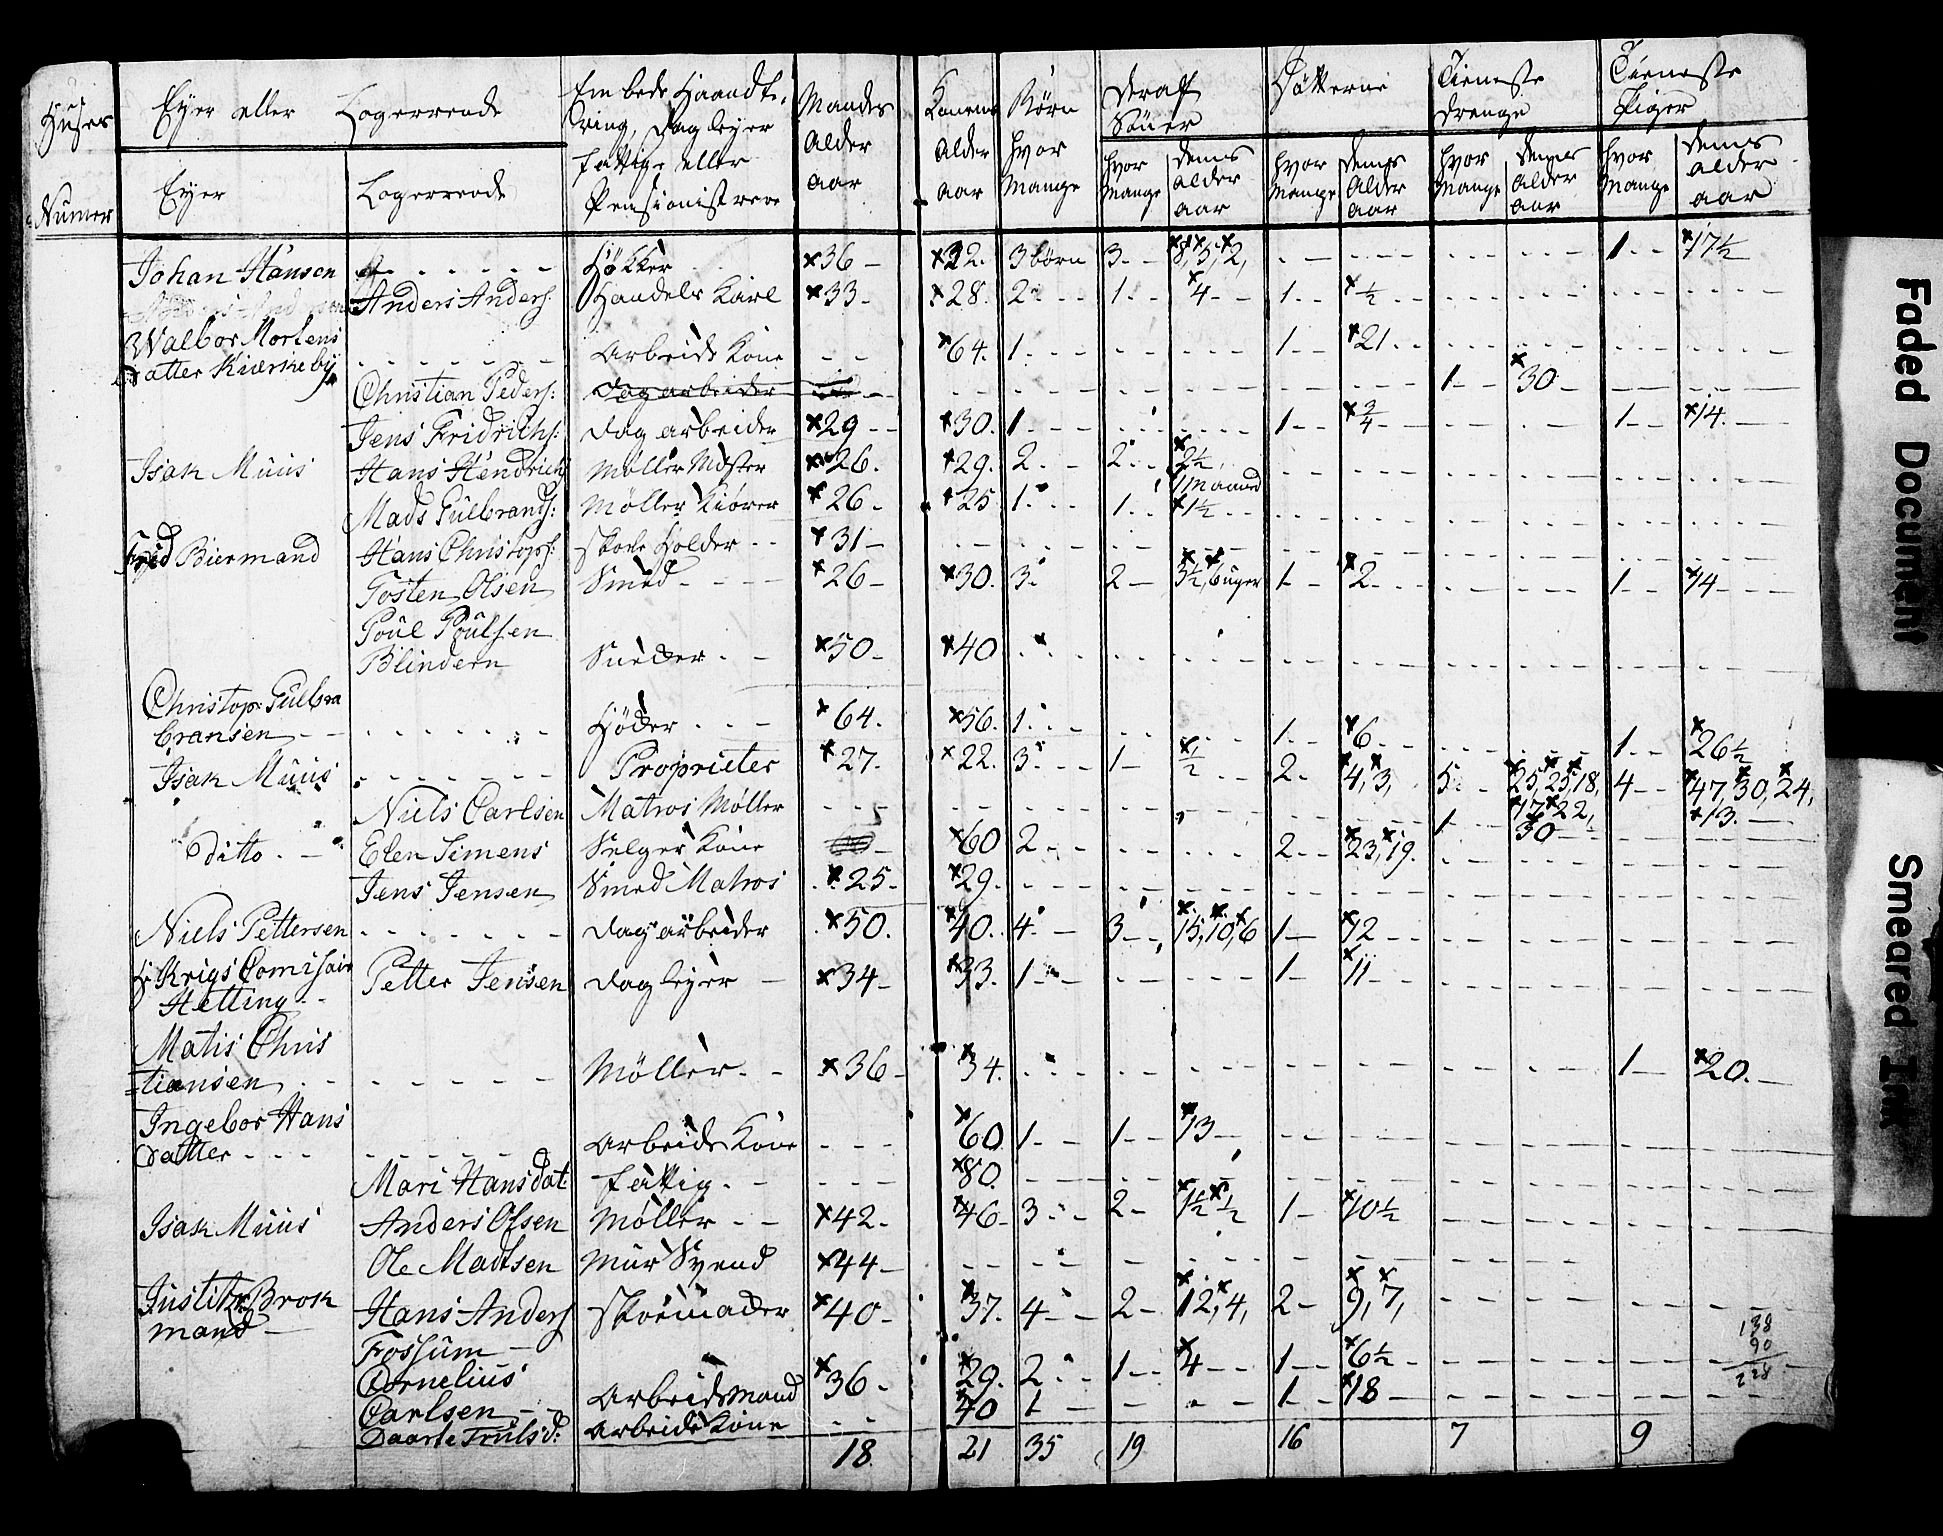 Huser Eyer eller Logerende Embede Haandte- Mandes Konens Børn Deraf Døtterne Tieneste Tieneste
ring, Dagleyer Alder Alder hvor Sönner Drenge Piger
Numer Eyer Logerende fattige eller aar aar Mange hvor Deres hvor Deres hvor Deres hvor Deres
Pensionist Mange alder Mange alder Mange alder Mange alder
aar aar aar aar
Johan Hansen Høkker 36 32. 3 børn 3 8, 5, 2, 1 17½
Anders Anders: Handels Karl 33 28. 2 1 4 1 ½
Walbor Mortens
Datter Kierkeby Arbeids Kone 64. 1 1 21
Christian Peders: Dagarbeider 1 30
Jens Fridrichs: Dagarbeider 29 30. 1 1 ¾ 1 14.
Isak Muus Hans Hendrichs Møller Mester 26. 29. 2 2 2½, 1 Maaned
Mads Gulbrands: Møller Kiører 26 25 1 1 1½
Frid Biermand Hans Christops: Skole Holder 31
Tosten Olsen Smed 26 30. 3 2 3½, 6 uger 1 2 1 14
Poul Poulsen
Blindern Sneder 50 40
Christop: Gulbra
bransen Høder 64. 56. 1 1 6 1 26½
Isak Muus Proprieter 27. 22. 3 1 ½ 2 4, 3, 5 25, 25, 18, 4 47, 30, 24,
17, 22, 13.
Niels Carlsen Matros Møller 1 30
Ditto Elen Simens Selger Kone 60 2 2 23, 19.
Jens Jensen Smed Matros 25 29.
Niels Pettersen Dagarbeider 50. 40. 4 3 15, 10, 6 1 12
Hr Krigs Comisair Petter Jensen Dagleyer 34 33. 1 1 11
Hetting
Matis Chris
tiansen Møller 36 34. 1 20.
Ingebor Hans
Datter Arbeids Kone 60 1 1 13
Mari Hansdat: fattig 80.
Isak Muus Anders Olsen Møller 42 46 3 2 1½ ½ 1 10½
Ole Madtsen Mur Svend 44
Justits Brok
mand Hans Anders Skoemager 40 37. 4 2 12, 4, 2 9, 7,
Fossum
Cornelius
Carlsen Arbeidsmand 36 29. 2 1 4 1 6½
Daarte Truls d: Arbeids Kone 40 1 1 18
138
90
228
18 21 35 19 16 7 9
Faded Document
Smeared Ink